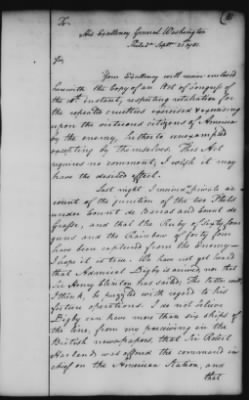 To
His Excellency General Washington
Philada Septr 21. 1781.
Sir,
Your Excellency will receive enclosed
herewith the Copy of an Act of Congress of
the 18th instant, respecting retaliation for
the repeated cruelties exercised &
upon the virtuous citizens of America
by the enemy, hitherto unexampled
excepting by themselves. This Act
requires no comment, I wish it may
have the desired effect.
Last night I received private ac-
count of the junction of the two Fleets
under Count de Barras and Count de
Grasse, and that the Richmond of thirty two
guns and the Iris
have been captured from the enemy—
I hope it is true. We have not yet heard
that Admiral Digby is arrived, nor that
Sir Henry Clinton has sailed. The latter will,
I think, be puzzled with regard to his
future operations. I do not believe
Digby can have more than six ships of
the line, from my perceiving in the
British newspapers, that Sir Robert
Harland was offered the command in
chief on the American Station, and
that